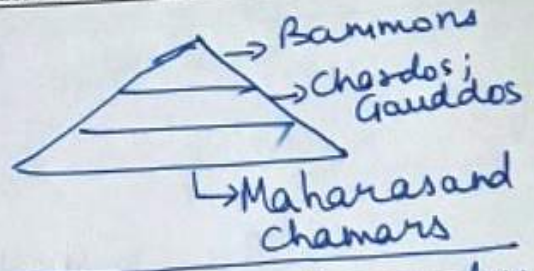 Bammons
Chardos;
Gauddos
Maharasand
Chamars